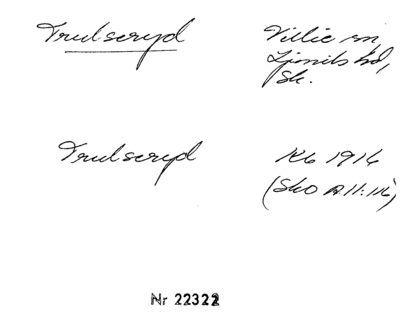 Trulseryd Villie sn
Ljunits hd,
Sk.
Trulseryd Kb 1916
(SkO A 11:116)
Nr 22322